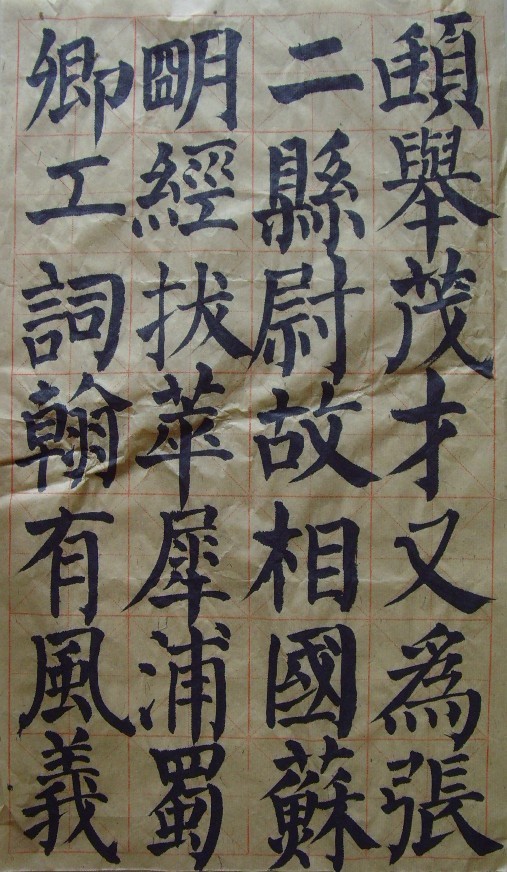 卿工詞翰有風義
朙經拔萃犀浦蜀
二縣尉故相國蘇
頲舉茂才又爲張